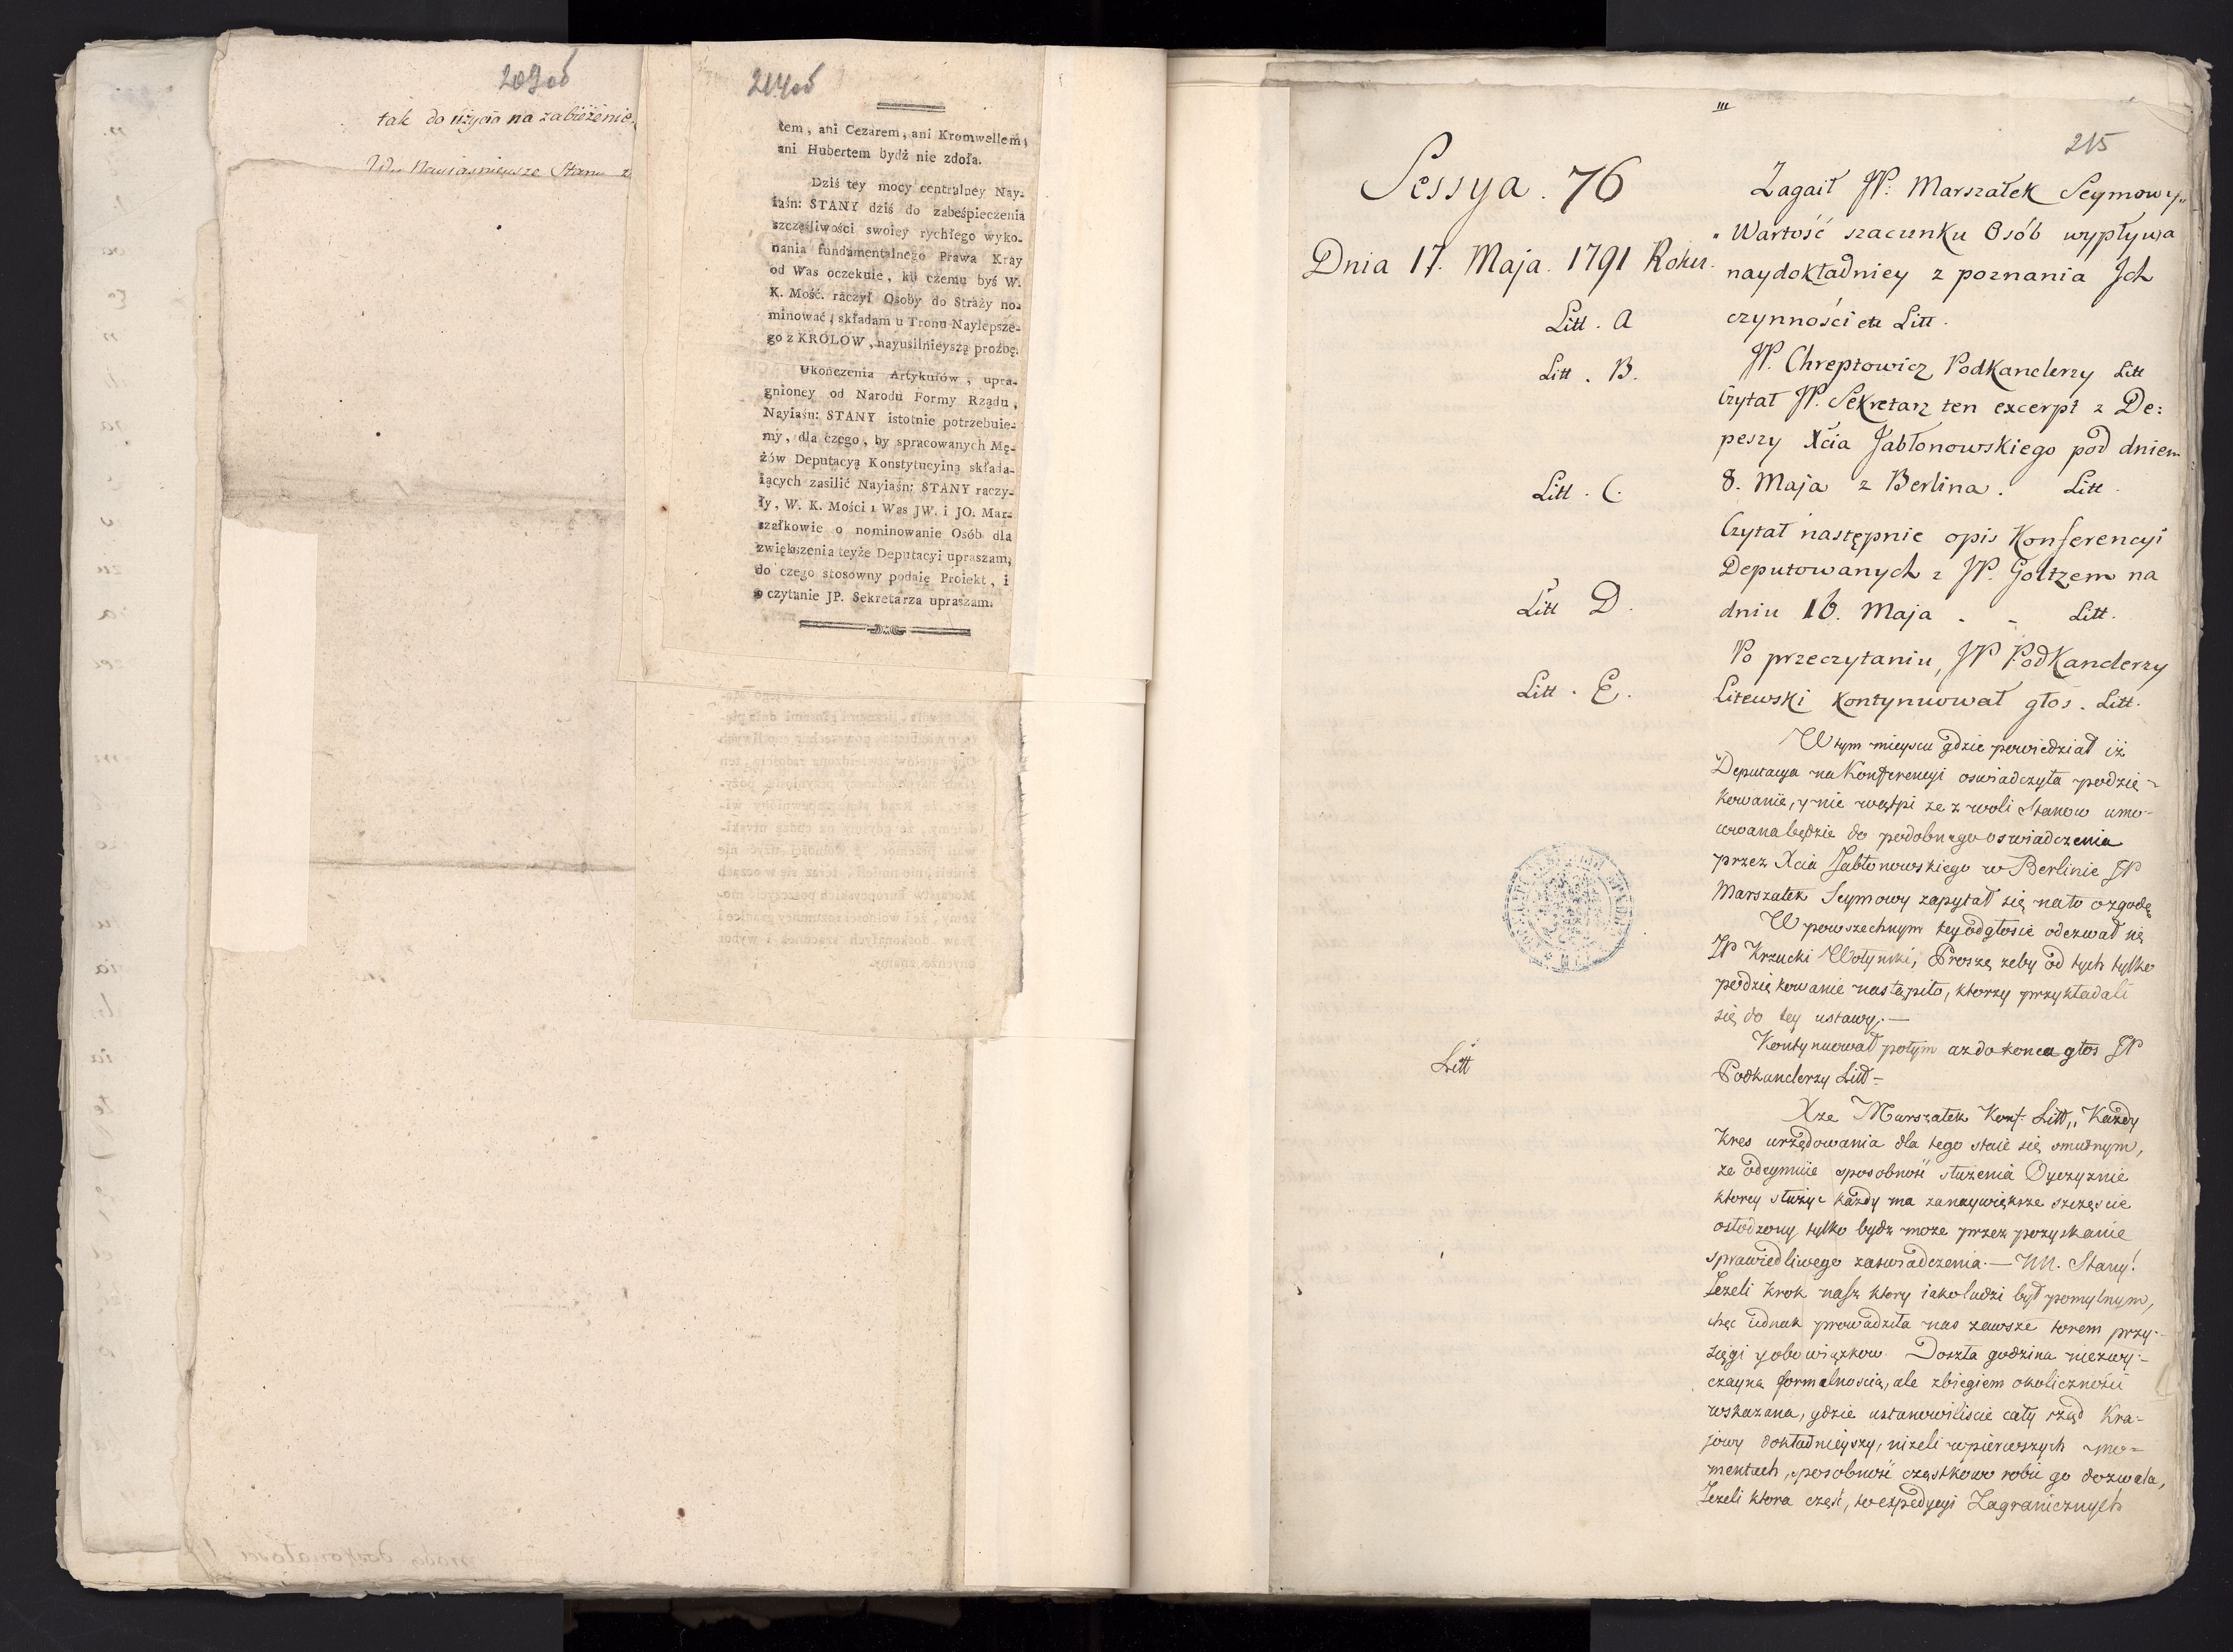 209od
tak do użycia na zabieżenie
Nayiasnieysze Stanu
214od
tem, ani Cezarem, ani Kromwellem,
ani Hubertem bydź nie zdoła.
Dziś tey mocy centralney Nay-
iaśn: STANY dziś do zabeśpieczenia
szczęśliwości swoiey rychłego wyko-
nania fundamentalnego Prawa Kray
od Was oczekuie, ku czemu byś W.
K. Mość. raczył Osoby do Straży no-
minować, składam u Tronu Naylepsze-
go z KROLOW, nayusilnieyszą proźbę.
Ukończenia Artykułów, upra-
gnioney od Narodu Formy Rządu,
Nayiaśn: STANY istotnie potrzebuie-
my, dla czego, by spracowanych Mę-
żów Deputacyą Konstytucyiną składa-
iących zasilić Nayiaśn: STANY raczy-
ły, W. K. Mości i Was JW. i JO. Mar-
szałkowie o nominowanie Osób dla
zwiększenia teyże Deputacyi upraszam,
do czego stosowny podaię Proiekt, i
o czytanie JP. Sekretarza upraszam.
215
Sessya. 76
Dnia 17. Maja. 1791 Roku.
Zagaił JP. Marszałek Seymowy„
„Wartość szacunku Osób wypływa
naydokładniey z poznania Jch
Litt. A czynności etc Litt.
Litt. B. JP. Chreptowicz Podkanclerzy Litt
Czytał JP. Sekretarz ten excerpt z De:
peszy Xcia Jabłonowskiego pod dniem
Litt. C. 8. Maja z Berlina. Litt.
Czytał następnie opis Konferencyi
Deputowanych z JP. Goltzem na
Litt D. dniu 16. Maja - - Litt.
Po przeczytaniu, JP Podkanclerzy
Litt. E. Litewski kontynuował głos. Litt.
W tym mieyscu gdzie powiedział iż
Deputacya na Konferencyi oswiadczyła podzię-
kowanie, y nie wątpi ze z woli Stanow umo-
cowana będzie do podobnego oswiadczenia
przez Xcia Jabłonowskiego w Berlinie JP
Marszałek Seymowy zapytał się na to o zgodę
W powszechnym tey odgłosie odezwał się
JP Krzucki Wołynski, Proszę zeby od tych tylko
podziękowanie nastąpiło, ktorzy przykładali
się do tey ustawy. —
Kontynuował potym az do konca głos JP
Litt Podkanclerzy Litt-
Xze Marszałek Konf. Litt„ Kazdy
Kres urzędowania dla tego staie się smutnym,
ze odeymuie sposobność słuzenia Oyczyznie
ktorey słuzyc kazdy ma za naywiększe szczęscie
osłodzony tylko bydz moze przez pozyskanie
sprawiedliwego zaswiadczenia. — NN. Stany!
Jezeli krok nasz ktory iako ludzi był pomylnym,
chęc iednak prowadziła nas zawsze torem przy-
sięgi y obowiązkow. Doszła godzina niezwy-
czayną formalnoscią, ale zbiegiem okoliczności
wskazana, gdzie ustanowiliscie cały rząd Kra-
jowy dokładnieyszy, nizeli w pierwszych mo-
mentach, sposobność cząstkowo robic go dozwala,
Jezeli ktora część, to expedycyi Zagranicznych